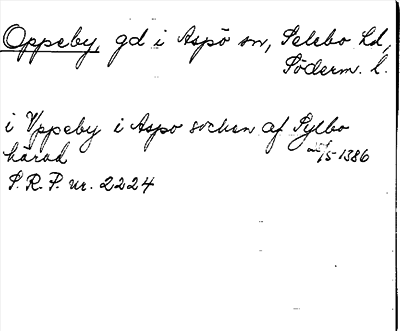 Oppeby, gd i Aspö sn, Selebo hd,
Söderm. l.
i Vppeby i Aspo socken af Sylbo
härad /5 1386
S.R.P. nr. 2224